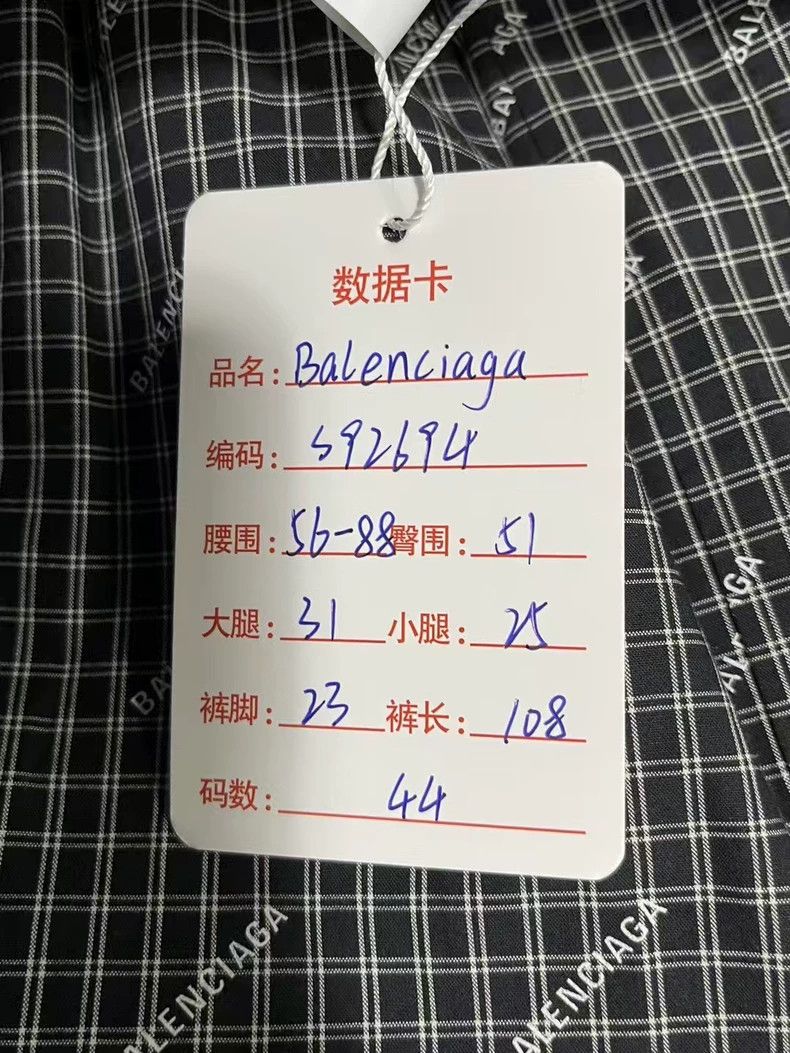 BALENCIAGA
数据卡
品名: Balenciaga
编码: 592694
腰围: 56-88 臀围: 51
大腿: 31 小腿: 25
裤脚: 23 裤长: 108
码数: 44
BALENCIAGA
BALENCIAGA